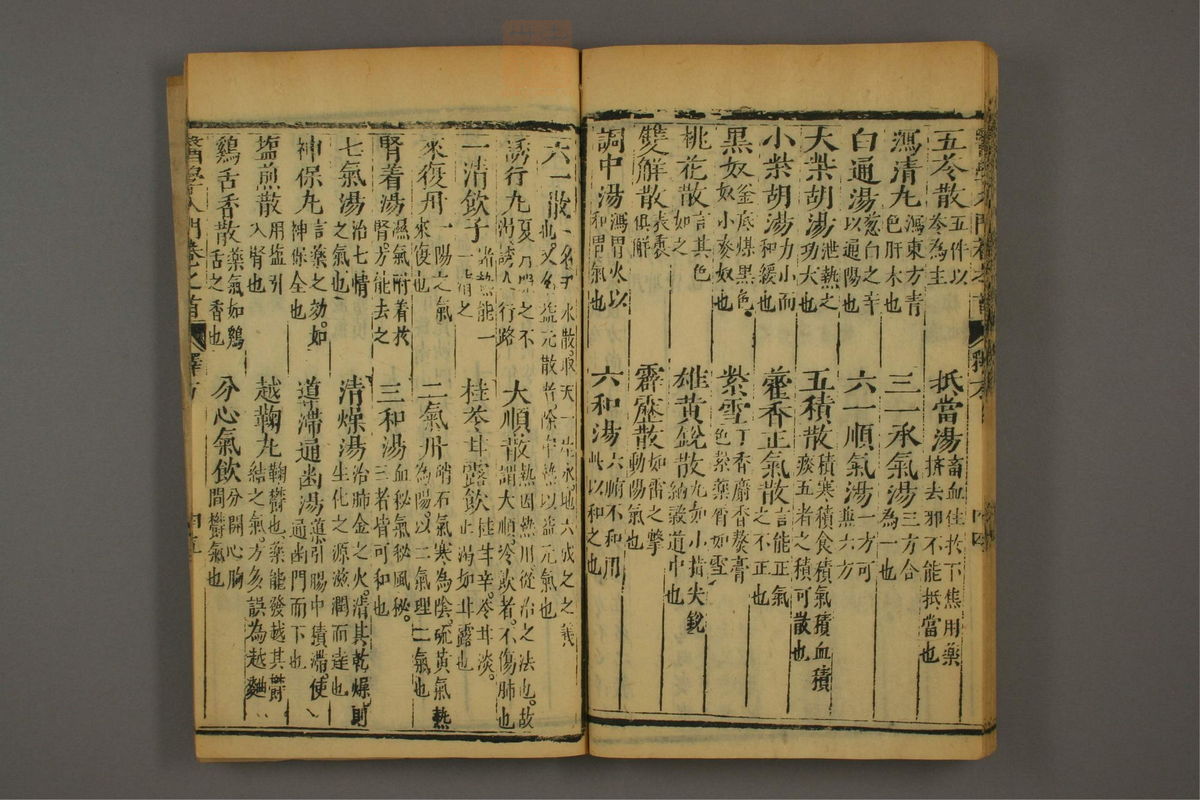 五苓散五件以苓為主 抵當湯畜血住於下焦用藥擠去邪不能抵當也
瀉清丸瀉東方青色肝木也 三一承氣湯三方合為一也
白通湯葱白之辛以通陽也 六一順氣湯一方可兼六方
大柴胡湯泄熱之功大也 五積散積寒積食積氣積血積痰五者之積可散也
小柴胡湯力小而和緩也 藿香正氣散言能正氣之不正也
黑奴釜底煤黑色奴小麥奴也 紫雪丁香麝香熬膏色紫藥霄如雪
桃花散言其色如之 雄黃銳散丸如小指尖銳納穀道中也
雙解散表裏俱解 霹靂散如雷之擊動陽氣也
調中湯瀉胃火以和胃氣也 六和湯六腑不和用此以和之也
六一散一名天水散取天一生水地六成之之義也又名益元散者除中熱以益元氣也
誘行丸夏月器之不渴誘人行路 大順散熱因熱用從治之法也故謂大順冷飲者不傷肺也
一清飲子諸熱能一一清之 桂苓甘露飲桂甘辛苓甘淡止渴如甘露也
來復丹一陽之氣來復也 二氣丹硝石氣寒為陰硫黃氣熱為陽以二氣理二氣也
腎着湯濕氣附着於腎方能去之 三和湯血秘氣秘風秘三者皆可和也
七氣湯治七情之氣也 清燥湯治肺金之火清其乾燥則生化之源滋潤而達也
神保丸言藥之効如神保全也 導滯通幽湯導引腸中積滯使通幽門而下也
塩煎散用塩引入腎也 越鞠丸鞠鬱也藥能發越其鬱結之氣方多誤為越麯
鷄舌香散藥氣如鷄舌之香也 分心氣飲分開心胸間鬱氣也
醫學入門卷之首 釋方